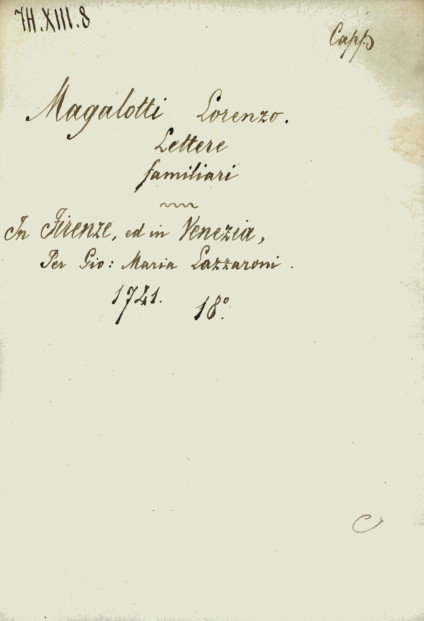 7H.XIII.8
Capp
Magalotti Lorenzo.
Lettere
familiari
In Firenze, ed in Venezia,
Per Gio: Maria Lazzaroni.
1741. 18º
C